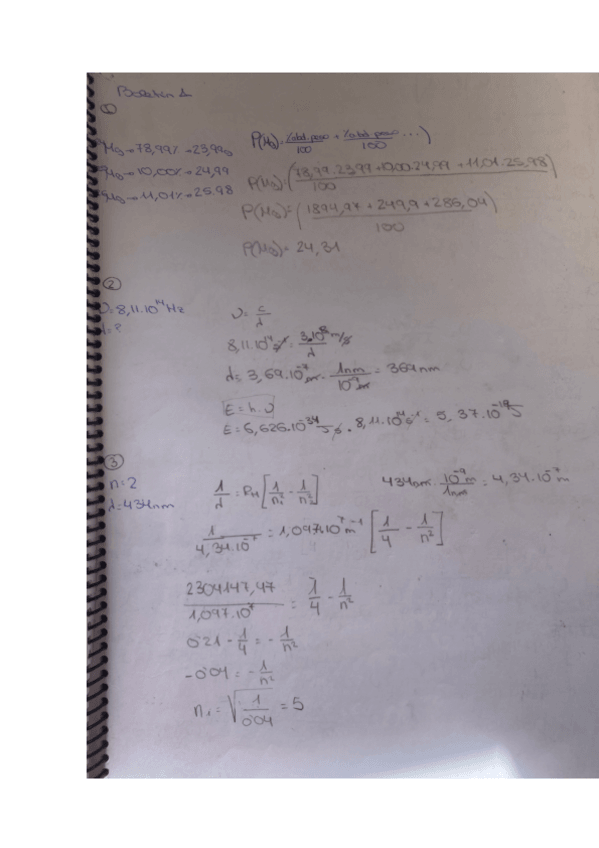 Boletín 1
①
Mg → 78,99% → 23,99
Mg → 10,00% → 24,99
Mg → 11,01% → 25,98
P(Mg) = (%abd. peso / 100 + %abd. peso / 100 ...)
P(Mg) = (78,99·23,99 + 10,00·24,99 + 11,01·25,98 / 100)
P(Mg) = (1894,97 + 249,9 + 286,04 / 100)
P(Mg) = 24,31
②
υ = 8,11·10¹⁴ Hz
λ = ?
υ = c/λ
8,11·10¹⁴ s⁻¹ = 3·10⁸ m/s / λ
λ = 3,69·10⁻⁷ m · 1nm / 10⁻⁹ m = 369 nm
E = h·υ
E = 6,626·10⁻³⁴ J s · 8,11·10¹⁴ s⁻¹ = 5,37·10⁻¹⁹ J
③
n = 2
λ = 434nm
1/λ = R_H [1/n² - 1/n²]
434nm · 10⁻⁹ m / 1nm = 4,34·10⁻⁷ m
1 / 4,34·10⁻⁷ = 1,097·10⁷ m⁻¹ [1/4 - 1/n²]
2304147,47 / 1,097·10⁷ = 1/4 - 1/n²
0'21 - 1/4 = - 1/n²
-0'04 = - 1/n²
n = √(1 / 0'04) = 5